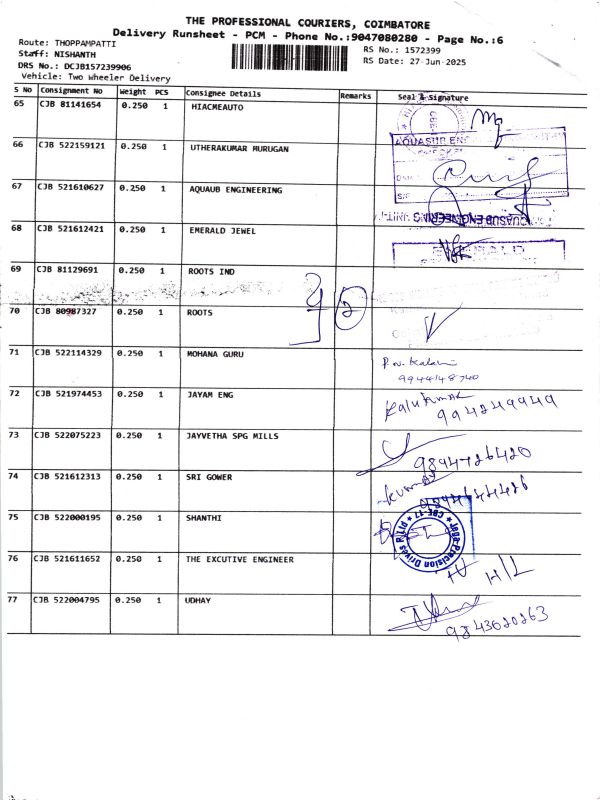 THE PROFESSIONAL COURIERS, COIMBATORE
Delivery Runsheet - PCM - Phone No.:9047080280 - Page No.:6
Route: THOPPAMPATTI
RS No.: 1572399
Staff: NISHANTH
RS Date: 27-Jun-2025
DRS No.: DCJB157239906
Vehicle: Two Wheeler Delivery
S No Consignment No Weight PCS Consignee Details Remarks Seal & Signature
65 CJB 81141654 0.250 1 HIACMEAUTO
66 CJB 522159121 0.250 1 UTHERAKUMAR MURUGAN
AQUASUB EN
67 CJB 521610627 0.250 1 AQUAUB ENGINEERING
AQUASUB ENGINEERING UNIT
68 CJB 521612421 0.250 1 EMERALD JEWEL
69 CJB 81129691 0.250 1 ROOTS IND
2
70 CJB 80987327 0.250 1 ROOTS
71 CJB 522114329 0.250 1 MOHANA GURU
9944148740
72 CJB 521974453 0.250 1 JAYAM ENG
994249949
73 CJB 522075223 0.250 1 JAYVETHA SPG MILLS
9894726420
74 CJB 521612313 0.250 1 SRI GOWER
Kumar
75 CJB 522000195 0.250 1 SHANTHI
Jega Precision Drives P Ltd * CBE-17 *
76 CJB 521611652 0.250 1 THE EXCUTIVE ENGINEER
77 CJB 522004795 0.250 1 UDHAY
9843620263